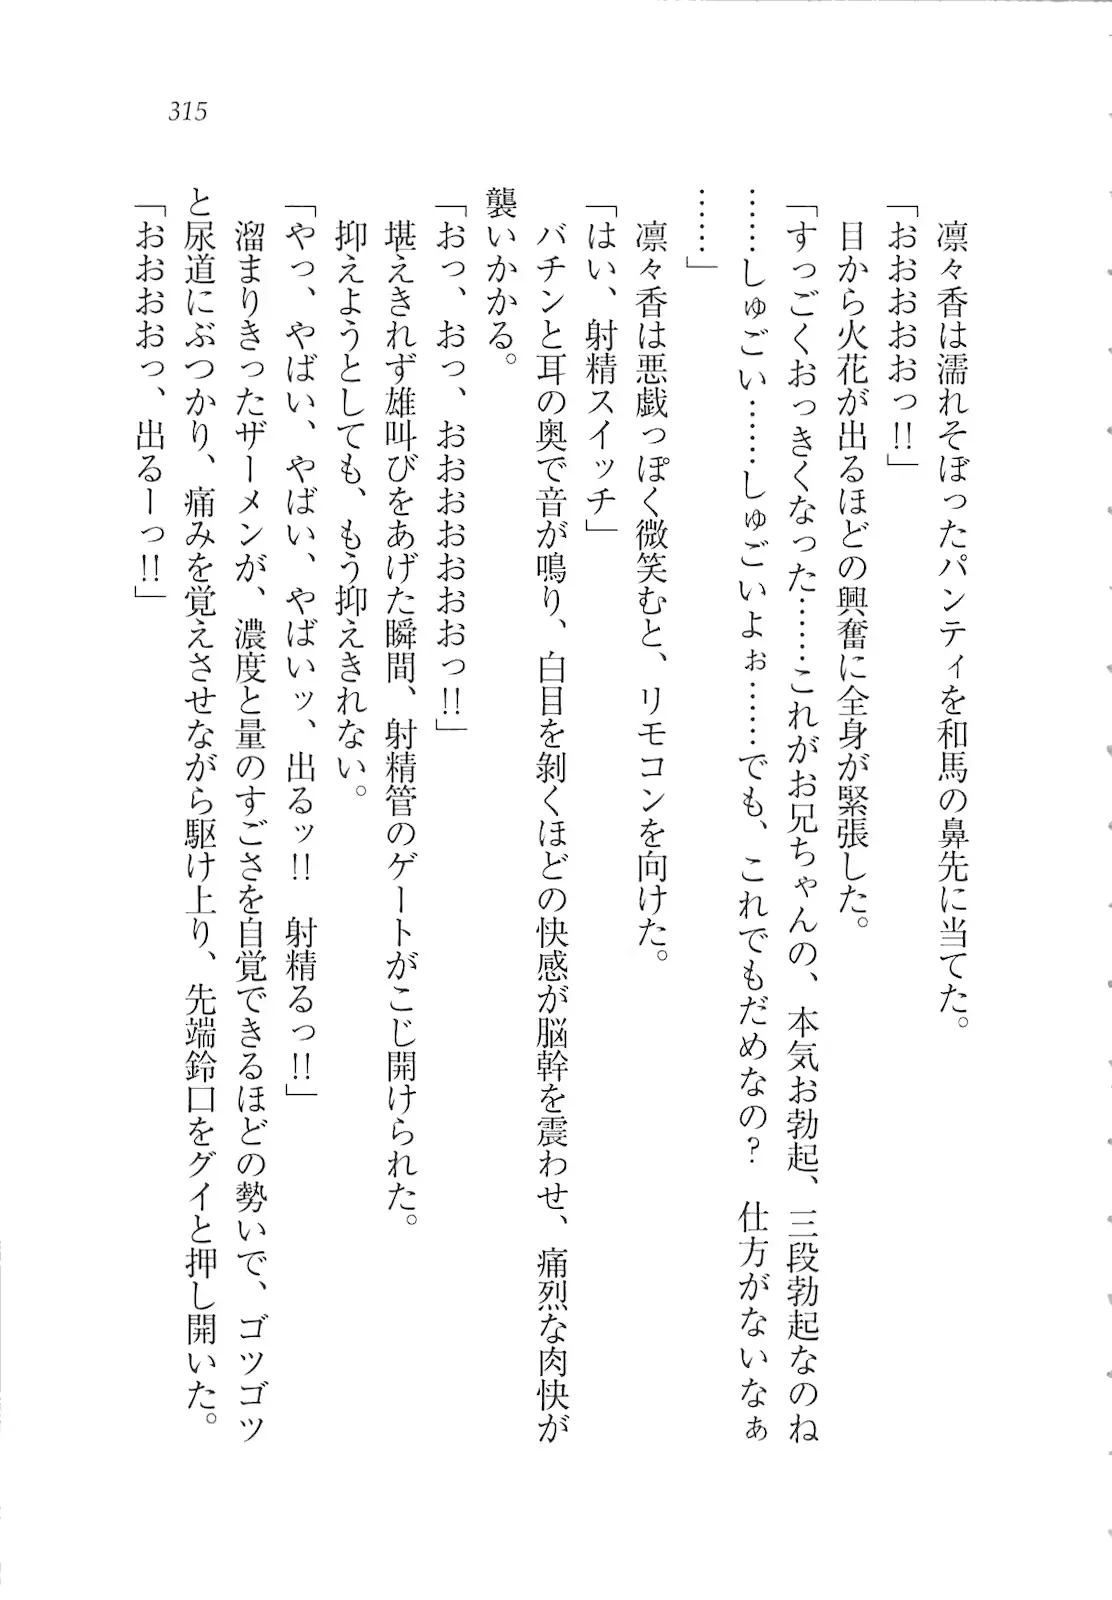 315
凛々香は濡れそぼったパンティを和馬の鼻先に当てた。
「おおおおおっ!!」
目から火花が出るほどの興奮に全身が緊張した。
「すっごくおっきくなった……これがお兄ちゃんの、本気お勃起、三段勃起なのね
……しゅごい……しゅごいよぉ……でも、これでもだめなの？　仕方がないなぁ
……」
凛々香は悪戯っぽく微笑むと、リモコンを向けた。
「はい、射精スイッチ」
バチンと耳の奥で音が鳴り、白目を剝くほどの快感が脳幹を震わせ、痛烈な肉快が
襲いかかる。
「おっ、おっ、おおおおおおおっ!!」
堪えきれず雄叫びをあげた瞬間、射精管のゲートがこじ開けられた。
抑えようとしても、もう抑えきれない。
「やっ、やばい、やばい、やばいッ、出るッ!!　射精るっ!!」
溜まりきったザーメンが、濃度と量のすごさを自覚できるほどの勢いで、ゴツゴツ
と尿道にぶつかり、痛みを覚えさせながら駆け上り、先端鈴口をグイと押し開いた。
「おおおおっ、出るーっ!!」